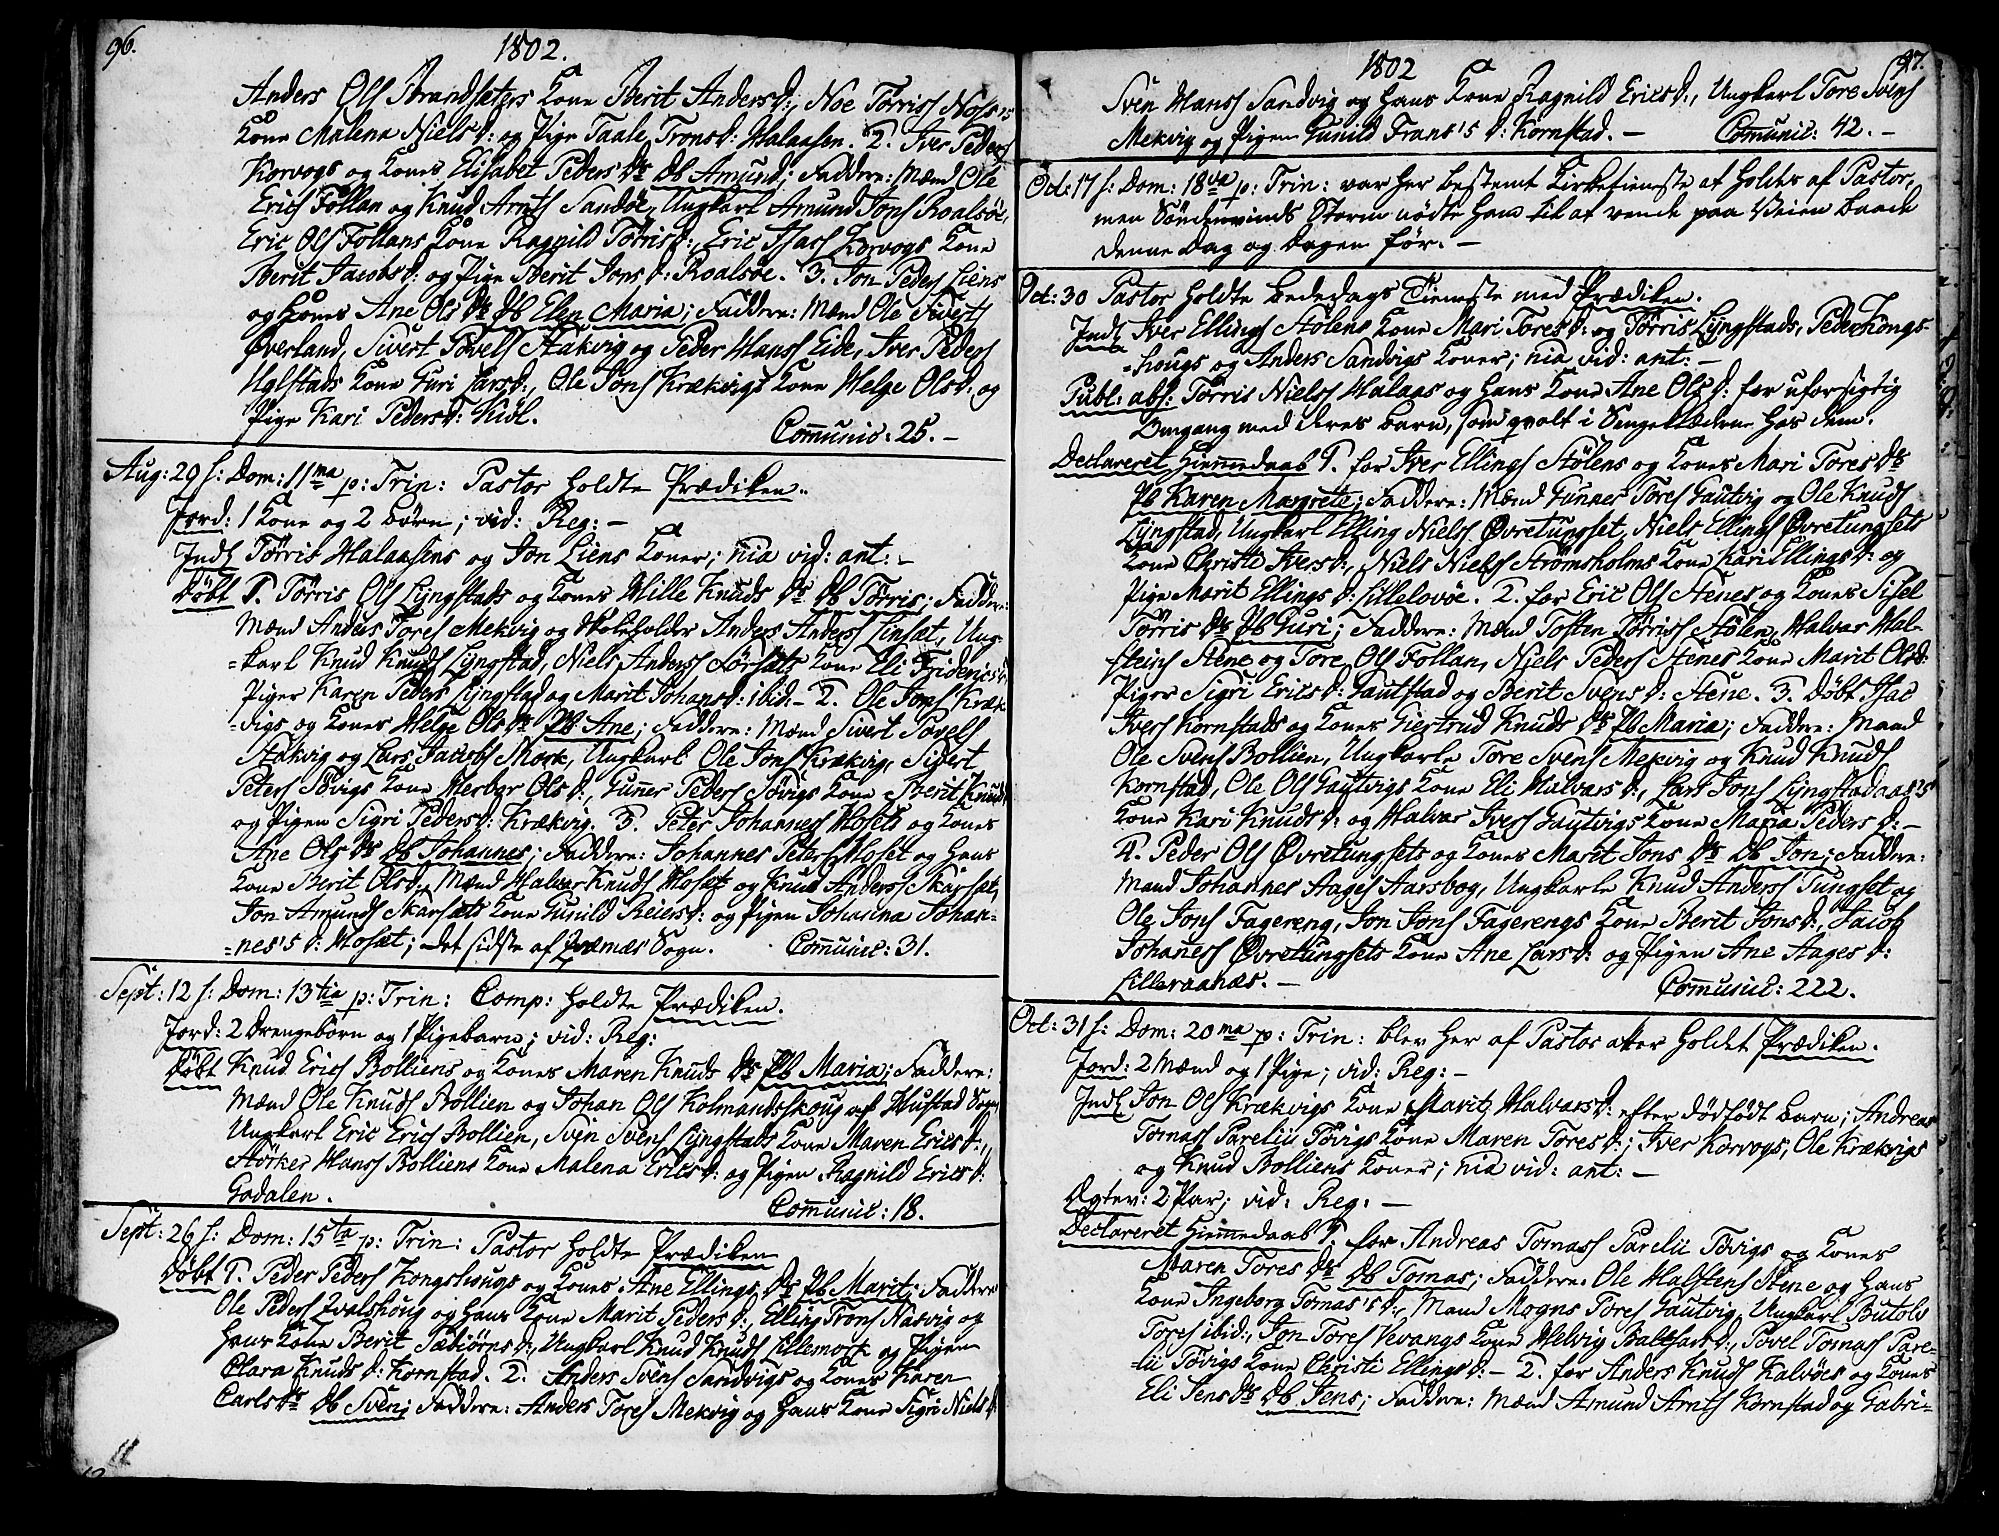 96.
1802.
Anders Ols Strandsæters Kone Berit Andersd:, Noe Tørriss Noses
Kone Malena Nielsd: og Pige Taale Tronsd: Halaasen. 2. Iver Peders
Korvogs og Kones Elisabet Peders Dr Db Amund; Faddere: Mænd Ole
Erics Follan og Knud Arnts Sandøe, Ungkarl Amund Jons Roalsøe,
Eric Ols Follans Kone Ragnild Tørrisd:, Eric Isacs Korvogs Kone
Berit Jacobsd: og Pige Berit Jonsd: Roalsøe. 3. Jon Peders Liens
og Kones Ane Ols Dr Pb Elen Maria; Faddere: Mænd Ole Siverts
Øverland, Sivert Povels Stakvig og Peder Hanss Eide, Iver Peders
Uglstads Kone Guri Larsd:, Ole Jons Krækvigs Kone Helge Olsd: og
Pige Kari Pedersd: Kiøl.
Communic: 25. -
Aug: 29 s: Dom: 11ma p: Trin: Pastor holdte Prædiken..
Jord: 1 Kone og 2 Børn; vid: Reg: -
Indl Tørris Halaasens og Jon Liens Koner; nia vid: ant: -
Døbt 1. Tørris Ols Lyngstads og Kones Mille Knuds Dr Db Tørris; Faddere:
Mænd Anders Tores Mekvig og Skoleholder Anders Anderss Linset, Ung-
=karl Knud Knuds Lyngstad, Niels AnderssFørsæts Kone Eli Fridericsd:
Piger Karen Peders Lyngstad og Marit Johansd: ibid: - 2. Ole Jons Kræk-
=vigs og Kones Helge Ols Dr Pb Ane; Faddere: Mænd Sivert Povels
Stakvig og Lars Jacobs Mork, Ungkarl Ole Jons Krækvig, Sivert
Peters Tøvigs Kone Herbor Olsd:, Gunner Peders Tøvigs Kone Berit Knudsd:
og Pigen Sigri Pedersd: Krækvig. 3. Peter Johannes Hosets og Kones
Ane Ols Dr Db Johannes; Faddere: Johannes Peters Hoset og hans
Kone Berit Olsd:, Mænd Halvar Knuds Hoset og Knud Anderss Skarset,
Jon Amunds Skarsæts Kone Gunild Reiersd: og Pigen Johanna Johan-
=nes's d: Hoset; det sidste af Qvernæs Sogn.
Comunic: 31.
Sept: 12 s: Dom: 13tia p: Trin: Comp: holdte Prædiken.
Jord: 2 Drengebørn og 1 Pigebarn; vid: Reg:
Døbt Knud Erics Bolliens og Kones Maren Knuds Dr Pb Maria; Faddere:
Mænd Ole Knuds Bollien og Johan Ols Kolmandsskoug af Hustad Sogn
Ungkarl Eric Erics Bollien, Svin Svens Lyngstads Kone Maren Ericsd:,
Størker Hanss Bolliens Kone Malena Ericsd: og Pigen Ragnild Ericsd:
Godalen.
Comunic: 18.
Sept: 26 s: Dom: 15ta p: Trin: Pastor holdte Prædiken
Døbt 1. Peder Peders Kongshougs og Kones Ane Ellings Dr Pb Marit; Faddere
Ole Peders Qvalshoug og hans Kone Marit Pedersd:, Elling Trons Nasvig og
hans Kone Berit Torbiørnsd:, Ungkarl Knud Knuds Lillemork og Pigen
Clara Knudsd: Kornstad. 2. Anders Svens Sandvigs og Kones Karen
Carls Dr Db Sven; Faddere: Anders Tores Mekvig og hans Kone Sigri Nielsd:
97.
1802
Sven Hanss Sandvig og hans Kone Ragnild Ericsd:, Ungkarl Tore Svens
Mekvig og Pigen Gunild Frans's d: Kornstad. - Comunic: 42. -
Oct: 17 s: Dom: 18va p: Trin: var her bestemt Kirketieneste at holdes af Pastor,
men Søndenvinds Storm nødte ham til at vende paa Veien baade
denne Dag og Dagen før. -
Oct: 30 Pastor holdte Bededags Tieneste med Prædiken.
Indl Iver Ellings Stølens Kone Mari Toresd: og Tørris Lyngstads, Peder Kongs-
=hougs og Anders Sandvigs Koner; nia vid: ant: -
Publ: abs: Tørris Niels Halaas og hans Kone Ane Olsd: for uforsigtig
Omgang med deres Barn, som qvalt i Sengeklæderne hos dem.
Declareret Hiemmedaab 1. for Iver Ellings Stølens og Kones Mari Tores Dr
Pb Karen Margrete; Faddere: Mænd Gunner Tores Gautvig og Ole Knuds
Lyngstad, Ungkarl Elling Niels Øvretungset, Niels Ellings Øvretungsets
Kone Christi Iversd:, Niels Niels Strømsholms Kone Kari Ellingsd: og
Pige Marit Ellingsd: Lilleløvøe. 2. for Eric Ols Stenes og Kones Sisel
Tørris Dr Pb Guri; Faddere: Mænd Tosten Tørriss Stølen, Halvar Hal-
steins Stene og Tore Ols Follan, Niels Peders Stenes Kone Marit Olsd:
Piger Sigri Ericsd: Gautstad og Berit Svensd: Stene. 3. Døbt Isac
Ivers Kornstads og Kones Giertrud Knuds Dr Pb Maria; Faddere: Mænd
Ole Svens Bollien, Ungkarle Tore Svens Mekvig og Knud Knuds
Kornstad, Ole Ols Gautvigs Kone Eli Halvarsd:, Lars Jons Lyngstadaas's
Kone Kari Knudsd: og Halvar Ivers Gautvigs Kone Maria Pedersd: -
4. Peder Ols Øvretungsets og Kones Marit Jons Dr Db Jon; Faddere:
Mænd Johannes Aages Aarsbog, Ungkarle Knud Anderss Tungset og
Ole Jons Fagereng, Jon Jons Fagerengs Kone Berit Jonsd:, Jacob
Johanes Øvretungsets Kone Ane Larsd: og Pigen Ane Aagesd:
Lilleraanæs. -
Comunic: 222.
Oct: 31 s: Dom: 20ma p: Trin: blev her af Pastor atter holdet Prædiken.
Jord: 2 Mænd og 1 Pige; vid: Reg: -
Indl Jon Ols Krækvigs Kone Marit Halvarsd: efter dødfødt Barn; Andreas
Tomass Parelii Tøvigs Kone Maren Toresd:; Iver Korvogs, Ole Krækvigs
og Knud Bolliens Koner; nia vid: ant: -
Ægtev: 2 Par; vid: Reg: -
Declareret Hiemmedaab 1. for Andreas Tomass Parelii Tøvigs og Kones
Maren Tores Dr Db Tomas; Faddere: Ole Halstens Stene og hans
Kone Ingeborg Tomas's d:, Mænd Mogns Tores Gautvig, Ungkarl Butolv
Tores ibid:, Jon Tores Vevangs Kone Helvig Baltsard:, Povel Tomass Pare-
=lii Tøvigs Kone Christi Ellingsd: - 2. for Anders Knuds Kalvøes og Kones
Eli Jens Dr Db Jens; Faddere: Mænd Amund Arnts Kornstad og Gabri-